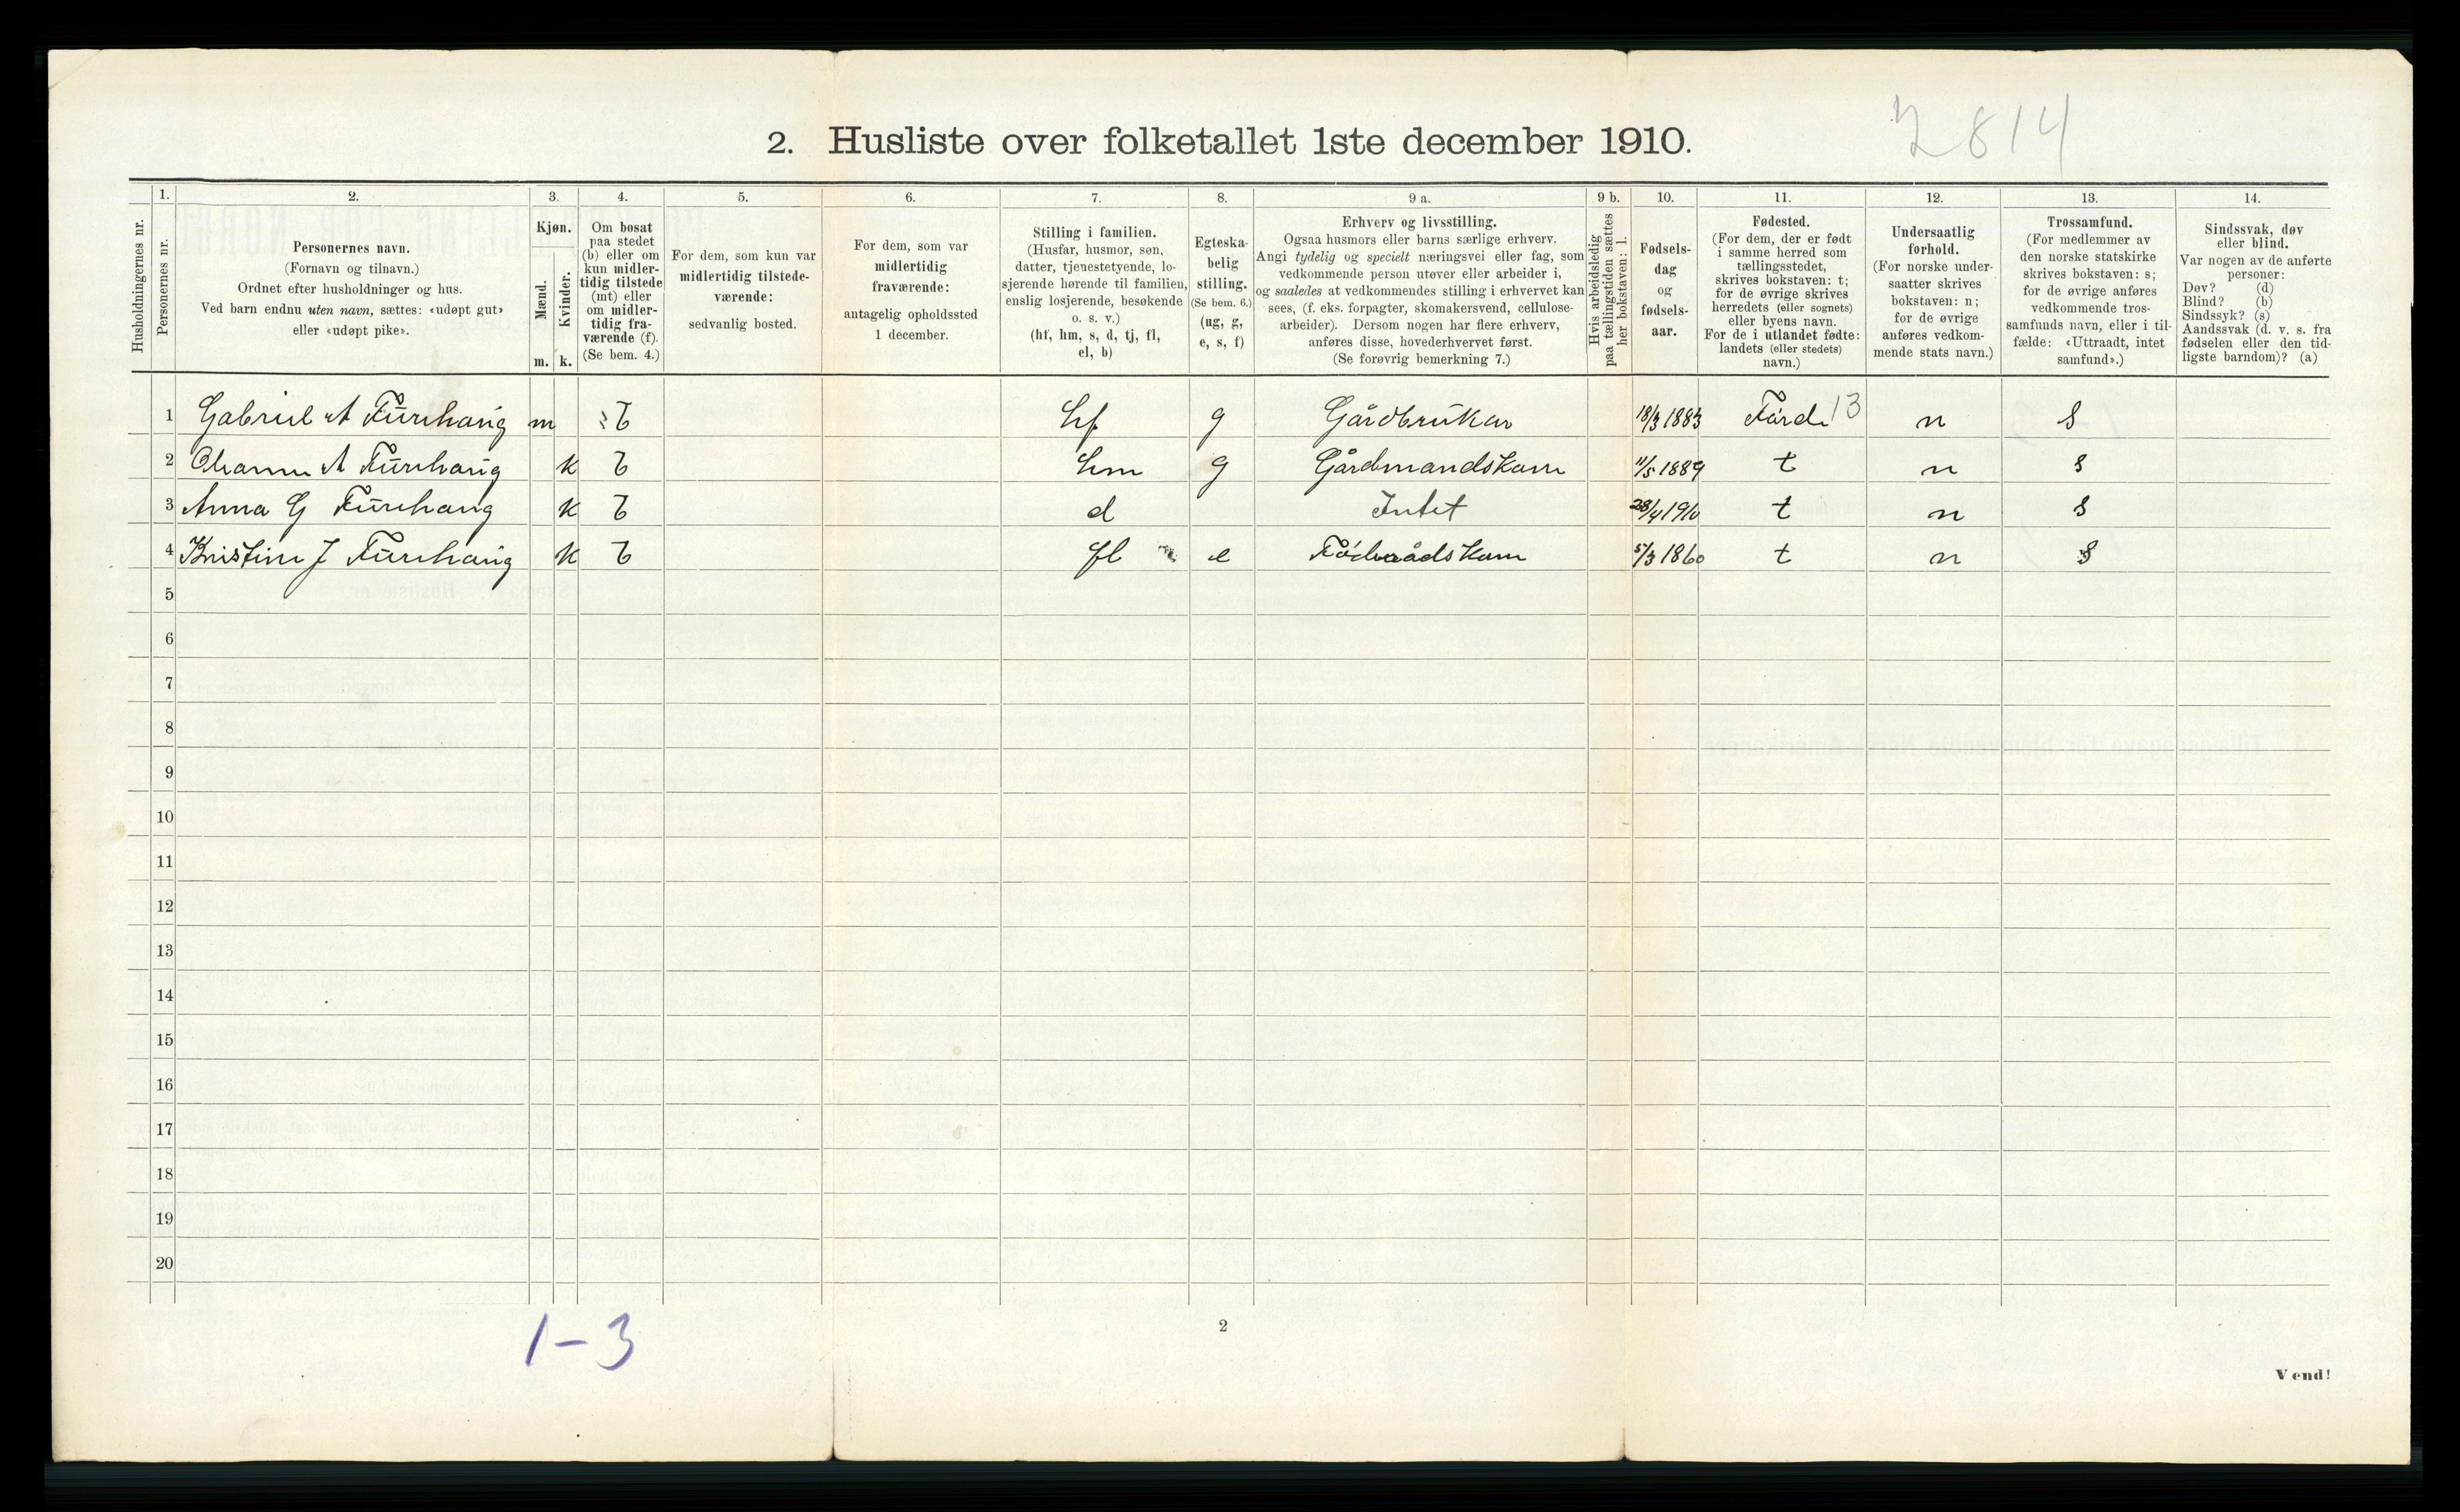 2. Husliste over folketallet 1ste december 1910.
2814
Husholdningernes nr.
1.
Personernes nr.
2.
Personernes navn.
(Fornavn og tilnavn.)
Ordnet efter husholdninger og hus.
Ved barn endnu uten navn, sættes: «udøpt gut»
eller «udøpt pike».
3.
Kjøn.
Mænd.
Kvinder.
m. k.
4.
Om bosat
paa stedet
(b) eller om
kun midler-
tidig tilstede
(mt) eller
om midler-
tidig fra-
værende (f).
(Se bem. 4.)
5.
For dem, som kun var
midlertidig tilstede-
værende:
sedvanlig bosted.
6.
For dem, som var
midlertidig
fraværende:
antagelig opholdssted
1 december.
7.
Stilling i familien.
(Husfar, husmor, søn,
datter, tjenestetyende, lo-
sjerende hørende til familien,
enslig losjerende, besøkende
o. s. v.)
(hf, hm, s, d, tj, fl,
el, b)
8.
Egteska-
belig
stilling.
(Se bem. 6.)
(ug, g,
e, s, f)
9 a.
Erhverv og livsstilling.
Ogsaa husmors eller barns særlige erhverv.
Angi tydelig og specielt næringsvei eller fag, som
vedkommende person utøver eller arbeider i,
og saaledes at vedkommendes stilling i erhvervet kan
sees, (f. eks. forpagter, skomakersvend, cellulose-
arbeider). Dersom nogen har flere erhverv,
anføres disse, hovederhvervet først.
(Se forøvrig bemerkning 7.)
9 b.
Hvis arbeidsledig
paa tællingstiden sættes
her bokstaven: l.
10.
Fødsels-
dag
og
fødsels-
aar.
11.
Fødested.
(For dem, der er født
i samme herred som
tællingsstedet,
skrives bokstaven: t;
for de øvrige skrives
herredets (eller sognets)
eller byens navn.
For de i utlandet fødte:
landets (eller stedets)
navn.)
12.
Undersaatlig
forhold.
(For norske under-
saatter skrives
bokstaven: n;
for de øvrige
anføres vedkom-
mende stats navn.)
13.
Trossamfund.
(For medlemmer av
den norske statskirke
skrives bokstaven: s;
for de øvrige anføres
vedkommende tros-
samfunds navn, eller i til-
fælde: «Uttraadt, intet
samfund».)
14.
Sindssvak, døv
eller blind.
Var nogen av de anførte
personer:
Døv? (d)
Blind? (b)
Sindssyk? (s)
Aandssvak (d. v. s. fra
fødselen eller den tid-
ligste barndom)? (a)
1 Gabriel A Furehaug m b hf g Gårdbruker 18/3 1883 Førde 13 n s
2 A Furehaug k b hm g Gårdmandskone 11/5 1889 t n s
3 Anna G Furehaug k b d Intet 28/4 1910 t n s
4 Kristine J Furehaug k b fl e Føderådskone 5/3 1860 t n s
5
6
7
8
9
10
11
12
13
14
15
16
17
18
19
20
1-3
2
Vend!